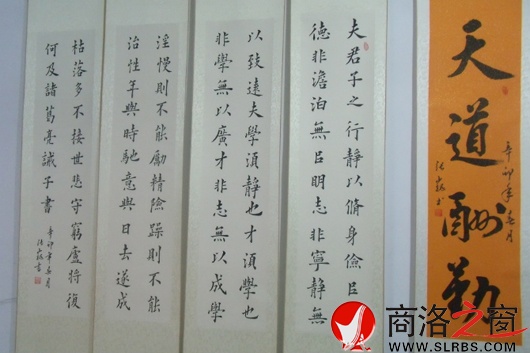 天道酬勤
辛卯年春月
夫君子之行靜以脩身儉㠯
德非澹泊無㠯明志非寧靜無
以致遠夫學須靜也才須學也
非學無以廣才非志無以成學
淫慢則不能勵精險躁則不能
治性年與時馳意與日去遂成
枯落多不接世悲守窮廬將復
何及諸葛亮誡子書
辛卯年春月
商洛之窗
www.SLRBS.COM